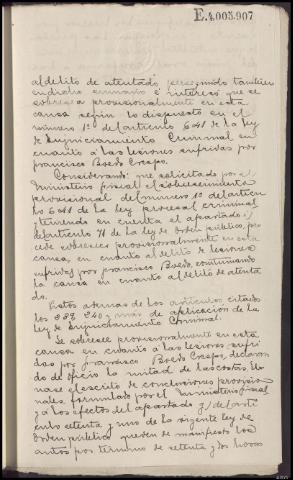 E.4.003.907
al delito de atentado, perseguido tambien
en dicho sumario é interesó que se
sobresea provisionalmente en esta
causa según lo dispuesto en el
número 1º del artículo 641 de la ley
de Enjuiciamiento Criminal en
cuanto á las lesiones sufridas por
Francisco Boedo Crespo.
Considerando: que solicitado por el
Ministerio fiscal el sobreseimiento
provisional del número 1º del artícu
lo 641 de la ley procesal criminal
y teniendo en cuenta el apartado
del artículo 71 de la ley de Orden público, pro
cede sobreseer provisionalmente en esta
causa, en cuanto al delito de lesiones
sufridas por Francisco Boedo, continuando
la causa en cuanto al delito de atenta
do.
Vistos ademas de los artículos citados
los y más de aplicación de la
ley de Enjuiciamiento Criminal.
Se sobresee provisionalmente en esta
causa en cuanto á las lesiones sufri
das por Francisco Boedo Crespo, declaran
do de oficio la mitad de las costas. Un
nase el escrito de conclusiones provisio
nales formulado por el Ministerio fiscal
y á los efectos del apartado del artí
culo setenta y uno de la vigente ley de
Orden público queden de manifiesto los
autos por término de setenta y dos horas